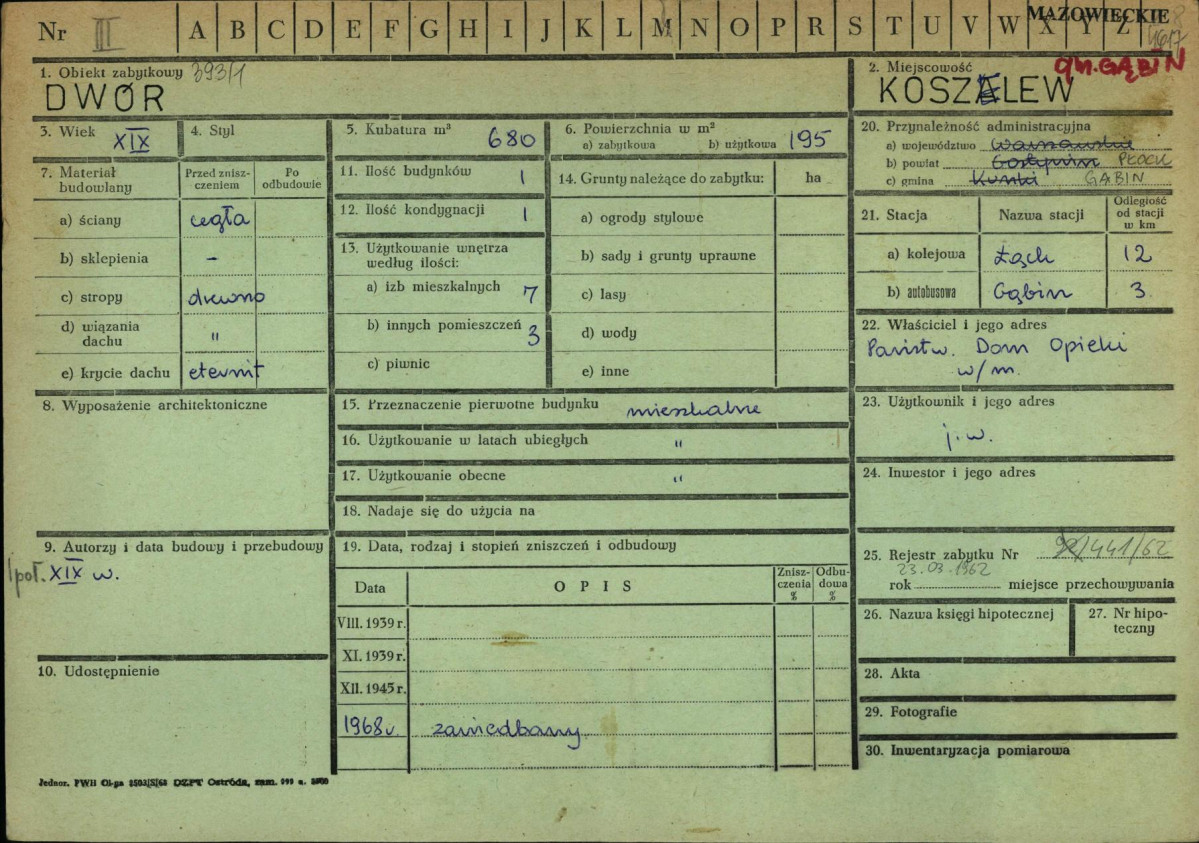 Nr III A B C D E F G H I J K L M N O P R S T U V W X Y Z MAZOWIECKIE
1. Obiekt zabytkowy 393/1
DWÓR
2. Miejscowość gm. GĄBIN
KOSZELEW
3. Wiek XIX
4. Styl
5. Kubatura m³ 680
6. Powierzchnia w m²
a) zabytkowa b) użytkowa 195
7. Materiał budowlany
Przed zniszczeniem
Po odbudowie
a) ściany cegła
b) sklepienia -
c) stropy drewno
d) wiązania dachu "
e) krycie dachu eternit
8. Wyposażenie architektoniczne
9. Autorzy i data budowy i przebudowy
I poł. XIX w.
10. Udostępnienie
11. Ilość budynków 1
12. Ilość kondygnacji 1
13. Użytkowanie wnętrza
według ilości:
a) izb mieszkalnych 7
b) innych pomieszczeń 3
c) piwnic
14. Grunty należące do zabytku: ha
a) ogrody stylowe
b) sady i grunty uprawne
c) lasy
d) wody
e) inne
15. Przeznaczenie pierwotne budynku mieszkalne
16. Użytkowanie w latach ubiegłych "
17. Użytkowanie obecne "
18. Nadaje się do użycia na
19. Data, rodzaj i stopień zniszczeń i odbudowy
Data OPIS Zniszczenia % Odbudowa %
VIII. 1939 r.
XI. 1939 r.
XII. 1945 r.
1968 r. zaniedbany
20. Przynależność administracyjna
a) województwo Warszawskie
b) powiat Gostynin PŁOCK
c) gmina GĄBIN
21. Stacja Nazwa stacji Odległość od stacji w km
a) kolejowa Łąck 12
b) autobusowa Gąbin 3
22. Właściciel i jego adres
Państw. Dom Opieki
w/m.
23. Użytkownik i jego adres
j.w.
24. Inwestor i jego adres
25. Rejestr zabytku Nr /441/62
23.03.1962
rok miejsce przechowywania
26. Nazwa księgi hipotecznej
27. Nr hipoteczny
28. Akta
29. Fotografie
30. Inwentaryzacja pomiarowa
Jednor. PWH Ol-ga DZPT Ostróda, zam.